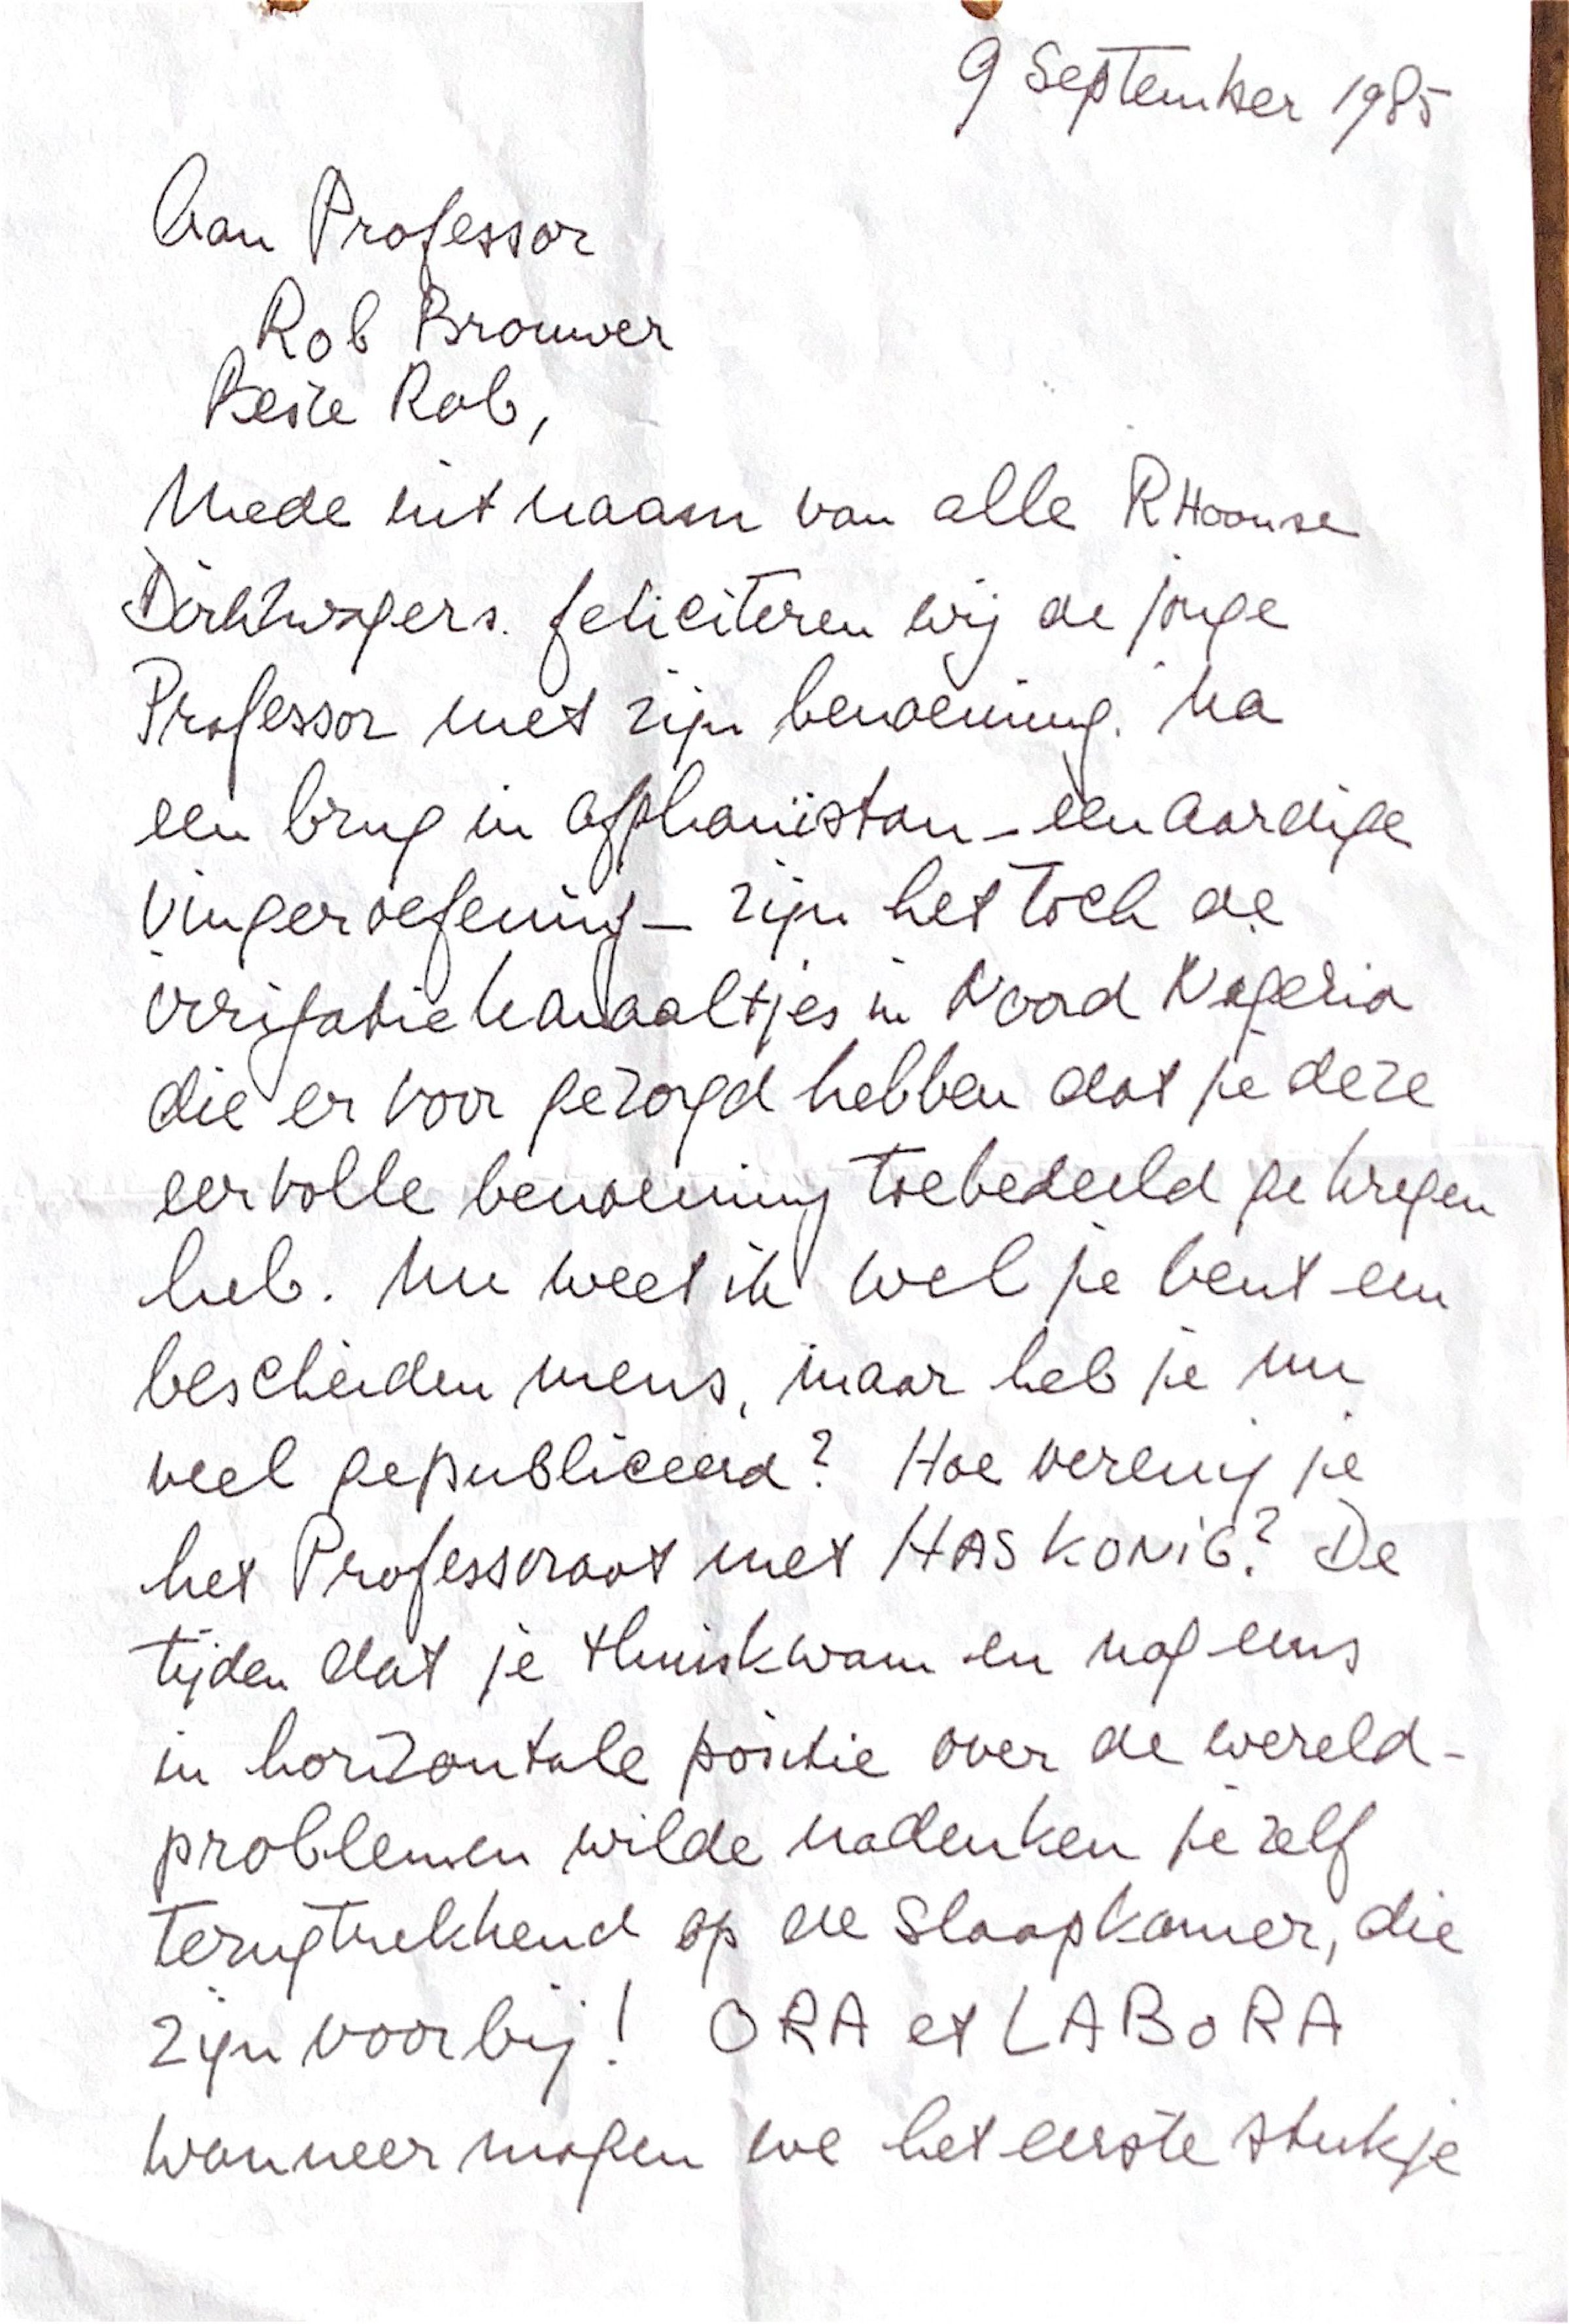 9 September 1985
Aan Professor
Rob Brouwer
Beste Rob,
Mede uit naam van alle RHoonse
Dirkzwagers. feliciteren wij de jonge
Professor met zijn benoeming. Na
een brug in Afghanistan - een aardige
vingeroefening - zijn het toch de
irrigatiekanaaltjes in Noord Nigeria
die er voor gezorgd hebben dat je deze
eervolle benoeming toebedeeld gekregen
heb. Nu weet ik wel je bent een
bescheiden mens, maar heb je nu
veel gepubliceerd? Hoe verenig je
het Professoraat met HASKONIG? De
tijden dat je thuiskwam en nog eens
in horizontale positie over de wereld-
problemen wilde nadenken je zelf
terugtrekkend op de slaapkamer, die
zijn voorbij! ORA et LABORA
wanneer mogen we het eerste stukje